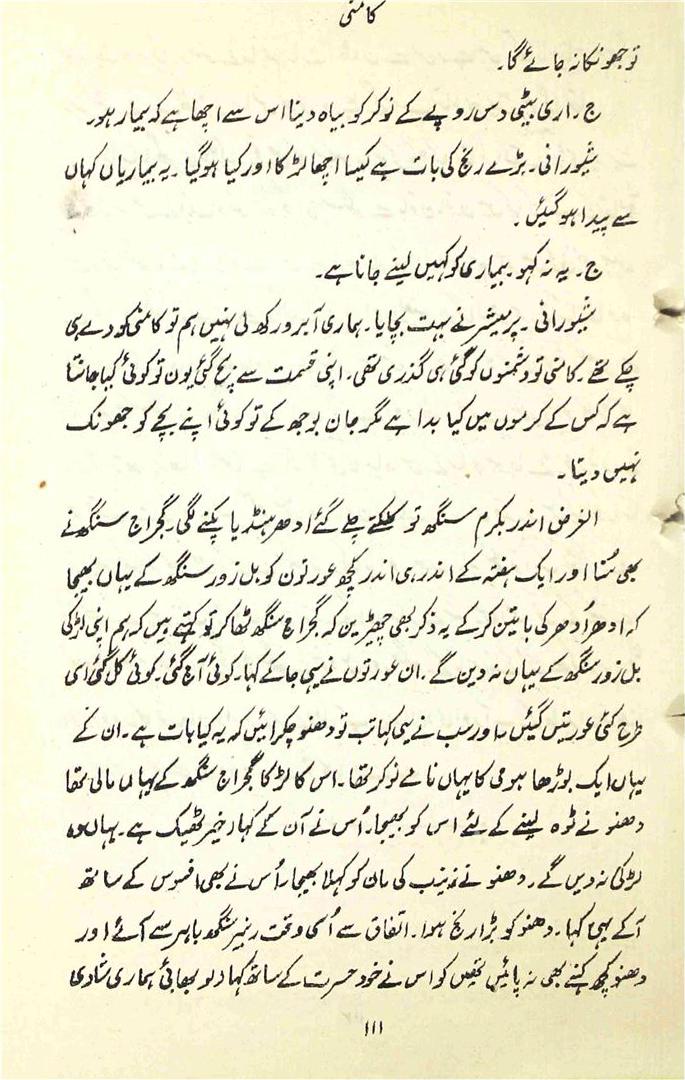 کامنی
تو جھونکا نہ جائے گا۔
ج۔ اری بیٹی دس روپے کے نوکر کو بیاہ دینا اس سے اچھا ہے کہ بیمار ہو۔
شیورانی۔ بڑے رنج کی بات ہے کیسا اچھا لڑکا اور کیا ہو گیا۔ یہ بیماریاں کہاں
سے پیدا ہو گئیں۔
ج۔ یہ نہ کہو۔ بیماری کو کہیں لینے جانا ہے۔
شیورانی۔ پرمیشر نے بہت بچایا۔ ہماری آبرو رکھ لی نہیں ہم تو کامنی کو دے ہی
چکے تھے۔ کامنی تو دشمنوں کو گئی ہی گذری تھی۔ اپنی قسمت سے بچ گئی یون تو کوئی کیا جانتا
ہے کہ کس کے کرموں میں کیا بدا ہے مگر جان بوجھ کے تو کوئی اپنے بچے کو جھونک
نہیں دیتا۔
الغرض اندر بکرم سنگھ تو کلکتے چلے گئے ادھر ہنڈیا پکنے لگی۔ گجراج سنگھ نے
بھی سُنا اور ایک ہفتہ کے اندر ہی اندر کچھ عورتون کو بل زور سنگھ کے یہاں بھیجا
کہ ادھر اُدھر کی باتین کر کے یہ ذکر بھی چھیڑین کہ گجراج سنگھ ٹھاکر تو کہتے ہیں کہ ہم اپنی لڑکی
بل زور سنگھ کے یہاں نہ دین گے۔ ان عورتوں نے یہی جا کے کہا۔ کوئی آج گئی۔ کوئی کل گئی اسی
طرح کئی عورتیں گئیں اور سب نے یہی کہا تب تو دھنو چکرائیں کہ یہ کیا بات ہے۔ ان کے
یہاں ایک بوڑھا ہومی کا یہاں نامے نوکر تھا۔ اس کا لڑکا گجراج سنگھ کے یہاں مالی تھا
دھنو نے ٹوہ لینے کے لئے اس کو بھیجا۔ اُس نے آن کے کہا، خبر ٹھیک ہے۔ یہاں وہ
لڑکی نہ دیں گے۔ دھنو نے زینب کی مان کو کہلا بھیجا۔ اُس نے بھی افسوس کے ساتھ
آ کے یہی کہا۔ دھنو کو بڑا رنج ہوا۔ اتفاق سے اُسی وقت رنبیر سنگھ باہر سے آئے اور
دھنو کچھ کہنے بھی نہ پائیں تھیں کو اس نے خود حسرت کے ساتھ کہا، لو بھابی ہماری شادی
۱۱۱